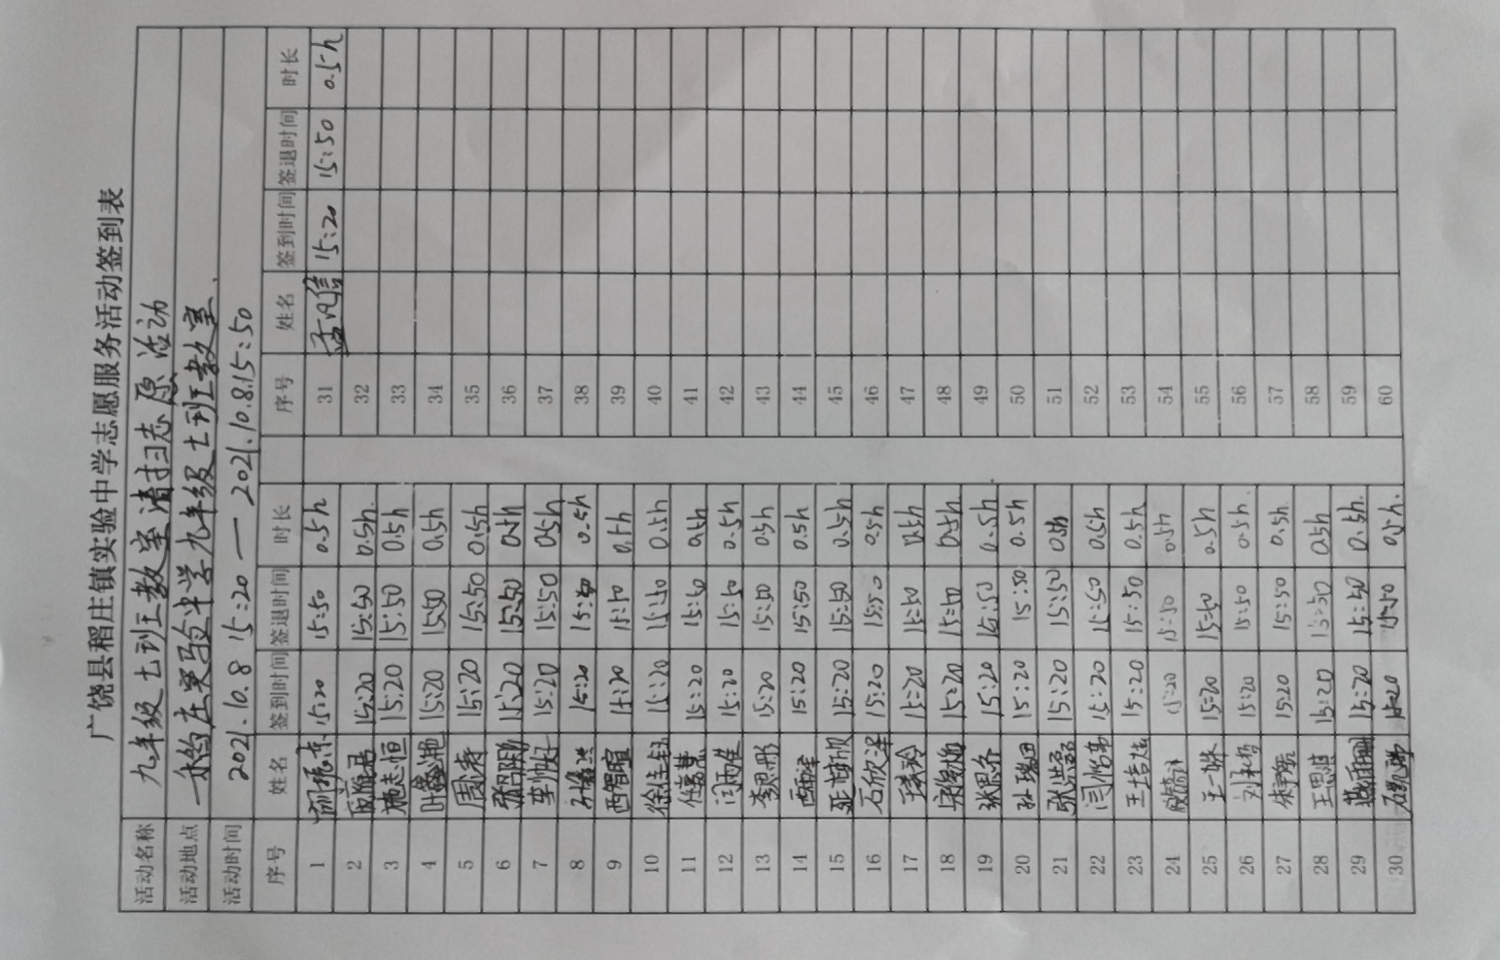 广饶县稻庄镇实验中学志愿服务活动签到表
活动名称 九年级七班教室清扫志愿活动
活动地点 稻庄实验中学九年级七班教室
活动时间 2021.10.8 15:20 — 2021.10.8.15:50
序号 姓名 签到时间 签退时间 时长 序号 姓名 签到时间 签退时间 时长
1 15:20 15:50 0.5h 31 孟凡信 15:20 15:50 0.5h
2 15:20 15:50 0.5h. 32
3 施志恒 15:20 15:50 0.5h 33
4 叶鑫滟 15:20 15:50 0.5h 34
5 周寿 15:20 15:50 0.5h 35
6 15:20 15:50 0.5h 36
7 李帅好 15:20 15:50 0.5h 37
8 15:20 15:50 0.5h 38
9 西智暄 15:20 15:50 0.5h 39
10 徐佳钰 15:20 15:50 0.5h 40
11 任嘉慧 15:20 15:50 0.5h 41
12 闫雨佳 15:20 15:50 0.5h 42
13 李思彤 15:20 15:50 0.5h 43
14 15:20 15:50 0.5h 44
15 15:20 15:50 0.5h 45
16 石欣泽 15:20 15:50 0.5h 46
17 15:20 15:50 0.5h 47
18 15:20 15:50 0.5h 48
19 张思齐 15:20 15:50 0.5h. 49
20 孙瑞田 15:20 15:50 0.5h 50
21 15:20 15:50 0.5h 51
22 闫怡菲 15:20 15:50 0.5h 52
23 15:20 15:50 0.5h 53
24 15:20 15:50 0.5h 54
25 王一林 15:20 15:50 0.5h 55
26 15:20 15:50 0.5h. 56
27 15:20 15:50 0.5h 57
28 15:20 15:50 0.5h 58
29 燕雨珊 15:20 15:50 0.5h. 59
30 15:20 15:50 0.5h. 60